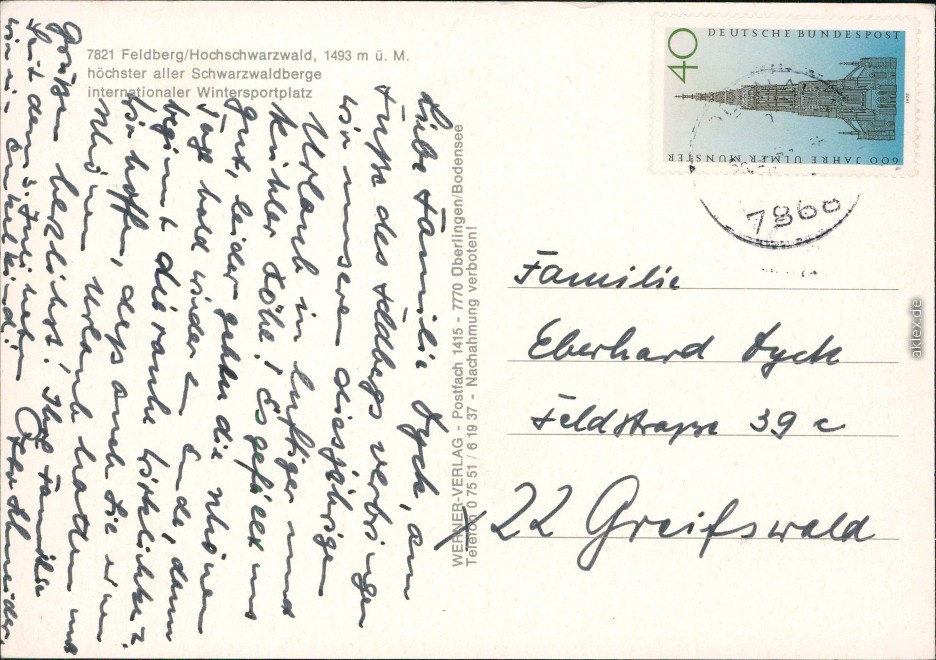 7821 Feldberg/Hochschwarzwald, 1493 m ü. M.
höchster aller Schwarzwaldberge
internationaler Wintersportplatz
Liebe Familie Dyck, am
Fuße des Feldbergs verbringen
wir unseren diesjährigen
Urlaub in luftiger und
kühler Höhe! Es gefällt uns
gut, leider gehen die schönen
Tage bald wieder zu Ende, dann
beginnt die rauhe Wirklichkeit.
Wir hoffen, dass auch Sie einen
schönen Urlaub hatten und
Grüßen herzlichst! Ihre Familie
Schneider.
Seit dem 3. Juni haben
wir ein Enkelkind!
WERNER-VERLAG - Postfach 1415 - 7770 Überlingen/Bodensee
Telefon 0 75 51 / 6 19 37 - Nachahmung verboten!
40
DEUTSCHE BUNDESPOST
600 JAHRE ULMER MÜNSTER
1977
7860
Familie
Eberhard Dyck
Feldstraße 39 c
X 22 Greifswald
aklex.de